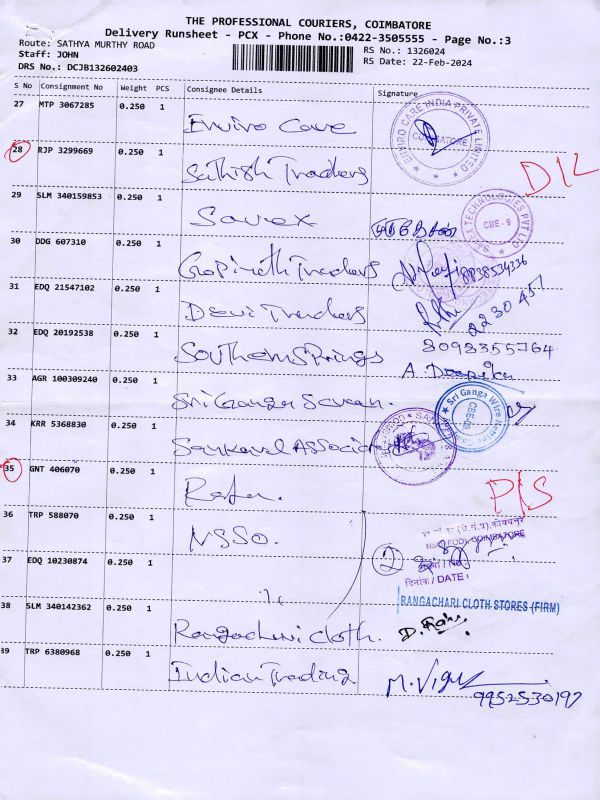 THE PROFESSIONAL COURIERS, COIMBATORE
Delivery Runsheet - PCX - Phone No.:0422-3505555 - Page No.:3
Route: SATHYA MURTHY ROAD
RS No.: 1326024
Staff: JOHN
RS Date: 22-Feb-2024
DRS No.: DCJB132602403
S No Consignment No Weight PCS Consignee Details Signature
27 MTP 3067285 0.250 1 Enviro Care
ENVIRO CARE INDIA PRIVATE LIMITED COIMBATORE
28 RJP 3299669 0.250 1 Sathish Traders D/L
29 SLM 340159853 0.250 1 Savex
TECHNOLOGIES PVT LTD CBE-9
30 DDG 607310 0.250 1 Gopinath Traders 8838534336
31 EDQ 21547102 0.250 1 Devi Traders
32 EDQ 20192538 0.250 1 Southern Springs 8093355764
A. Deepika
33 AGR 100309240 0.250 1 Sri Ganga Screen.
Sri Ganga Wire
34 KRR 5368830 0.250 1 Sankaval Associates
35 GNT 406070 0.250 1 P/S
36 TRP 588070 0.250 1 NSSO.
COIMBATORE
37 EDQ 10230874 0.250 1
दिनांक / DATE:
38 SLM 340142362 0.250 1 Rangachari Cloth.
RANGACHARI CLOTH STORES (FIRM)
39 TRP 6380968 0.250 1 Indian Trading
9952530197